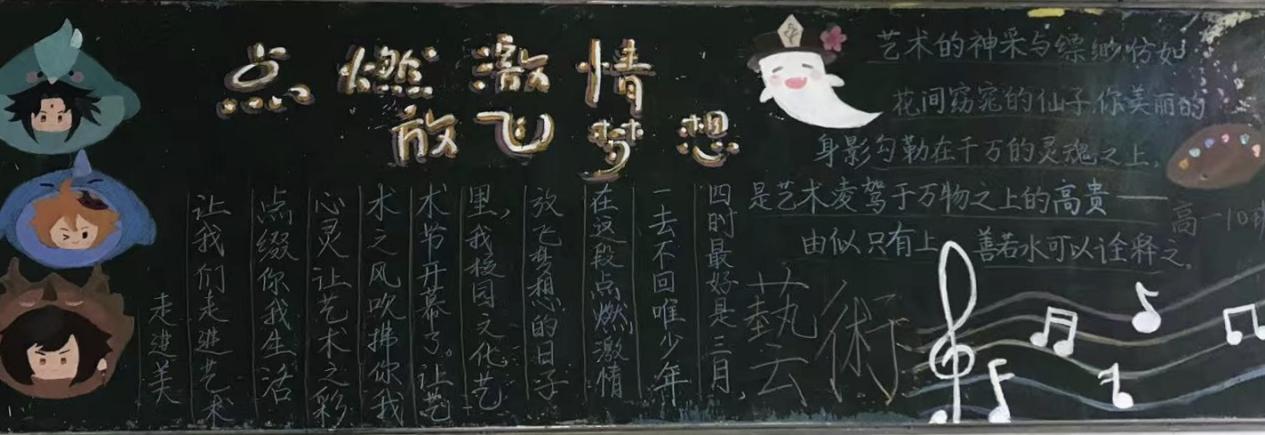 点燃激情
放飞梦想
艺术的神采与缥缈仿如
花间窈窕的仙子,你美丽的
身影勾勒在千万的灵魂之上,
是艺术凌驾于万物之上的高贵——
由似只有上善若水可以诠释之。
高一10班
藝術
四时最好是三月,
一去不回唯少年
在这段点燃激情
放飞梦想的日子
里,我校园文化艺
术节开幕了。让艺
术之风吹拂你我
心灵让艺术之彩
点缀你我生活
让我们走进艺术
走进美